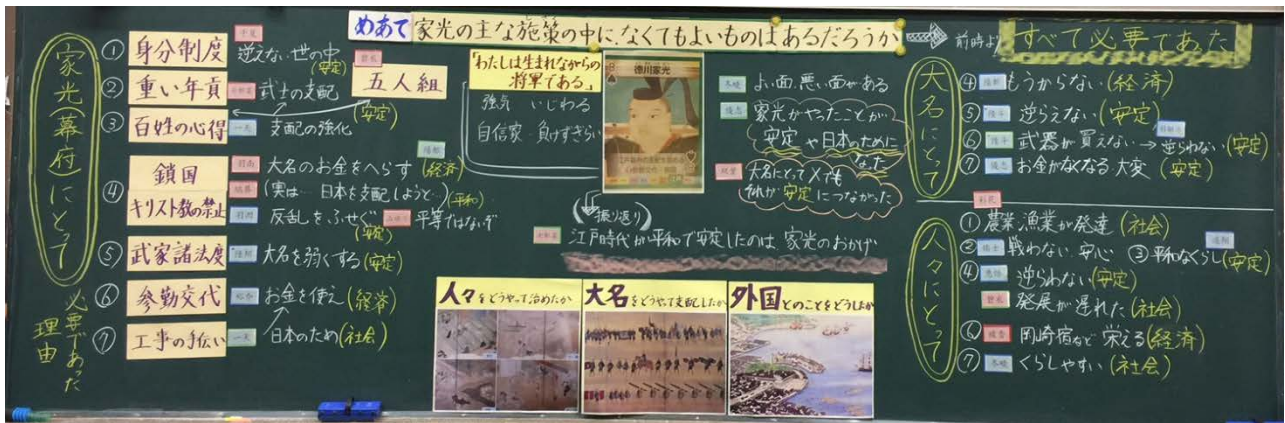 めあて 家光の主な施策の中に、なくてもよいものはあるだろうか
前時より すべて必要であった
家光(幕府)にとって
必要であった理由
① 身分制度 逆えない世の中(安定)
五人組
② 重い年貢 武士の支配
(安定)
③ 百姓の心得 支配の強化
④ 鎖国 大名のお金をへらす(経済)
(実は…日本を支配しようと…)(平和)
キリスト教の禁止 反乱をふせぐ 平等ではないぞ
(安定)
⑤ 武家諸法度 大名を弱くする(安定)
⑥ 参勤交代 お金を使え(経済)
⑦ 工事の手伝い 日本のため(社会)
「わたしは生まれながらの
将軍である。」
強気 いじわる
自信家 負けずぎらい
徳川家光
よい面、悪い面がある
家光がやったことが
安定や日本のために
なった
大名にとって×でも
それが安定につながった
(振り返り)
江戸時代が平和で安定したのは、家光のおかげ
人々をどうやって治めたか
大名をどうやって支配したか
外国とのことをどうしたか
大名にとって
④ もうからない(経済)
⑤ 逆らえない(安定)
⑥ 武器が買えない→逆らわない(安定)
⑦ お金がなくなる 大変(安定)
人々にとって
① 農業 漁業が発達(社会)
② 戦わない 安心 ③ 平和なくらし(安定)
④ 逆らわない(安定)
発展が遅れた(社会)
⑥ 岡崎宿など 栄える(経済)
⑦ くらしやすい(社会)